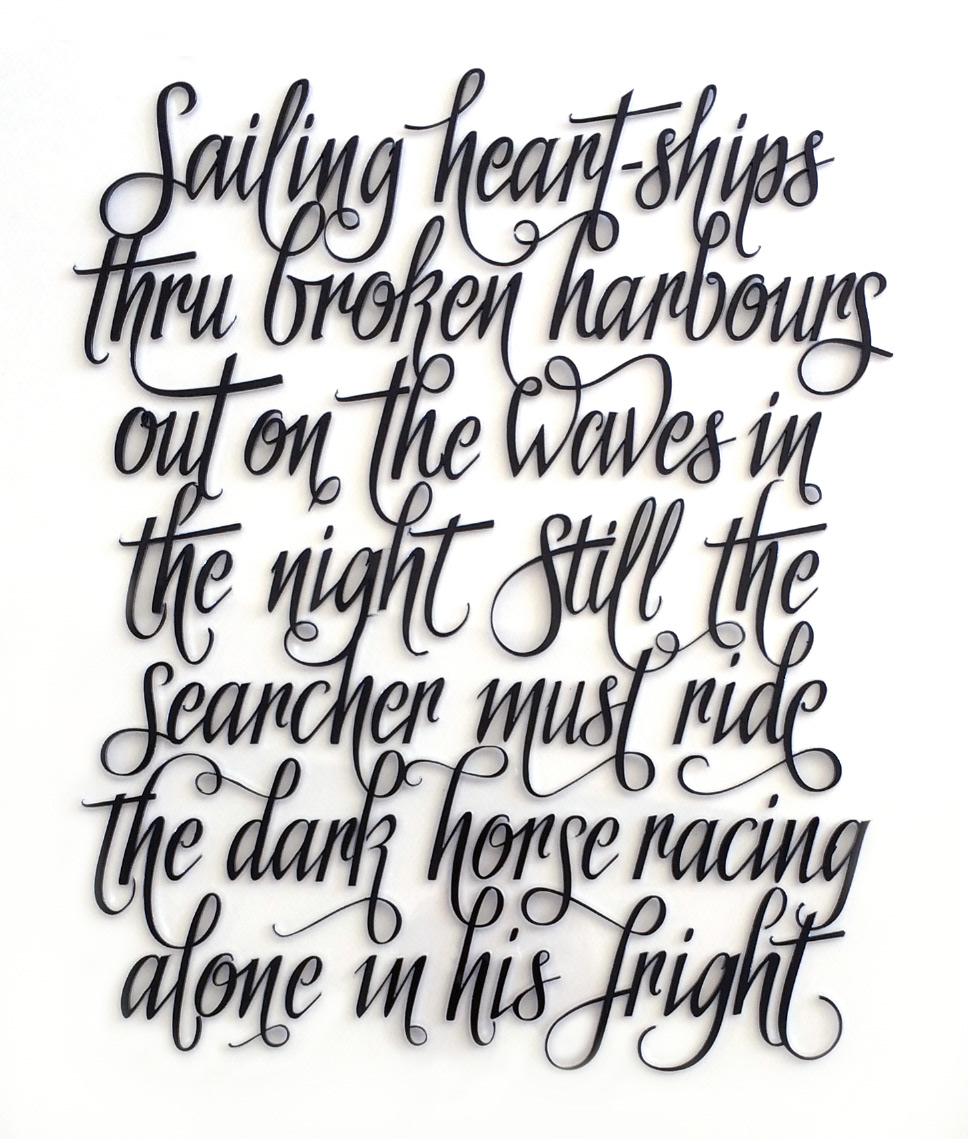 Sailing heart-ships
thru broken harbours
out on the waves in
the night Still the
searcher must ride
the dark horse racing
alone in his fright